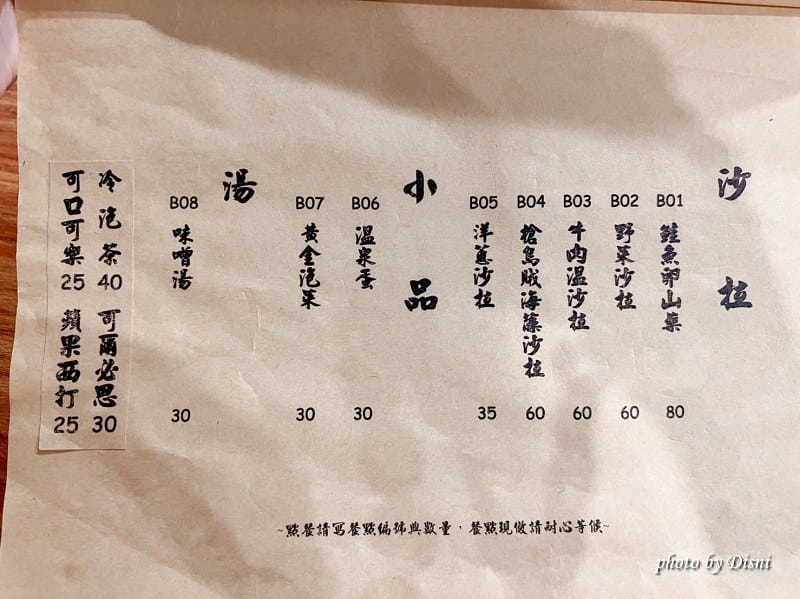 沙拉
B01 鮭魚卵山藥 80
B02 野菜沙拉 60
B03 牛肉溫沙拉 60
B04 槍烏賊海藻沙拉 60
B05 洋蔥沙拉 35
小品
B06 溫泉蛋 30
B07 黃金泡菜 30
湯
B08 味噌湯 30
冷泡茶 40
可爾必思 30
可口可樂 25
蘋果西打 25
~點餐請寫餐點編號與數量，餐點現做請耐心等候~
photo by Disni